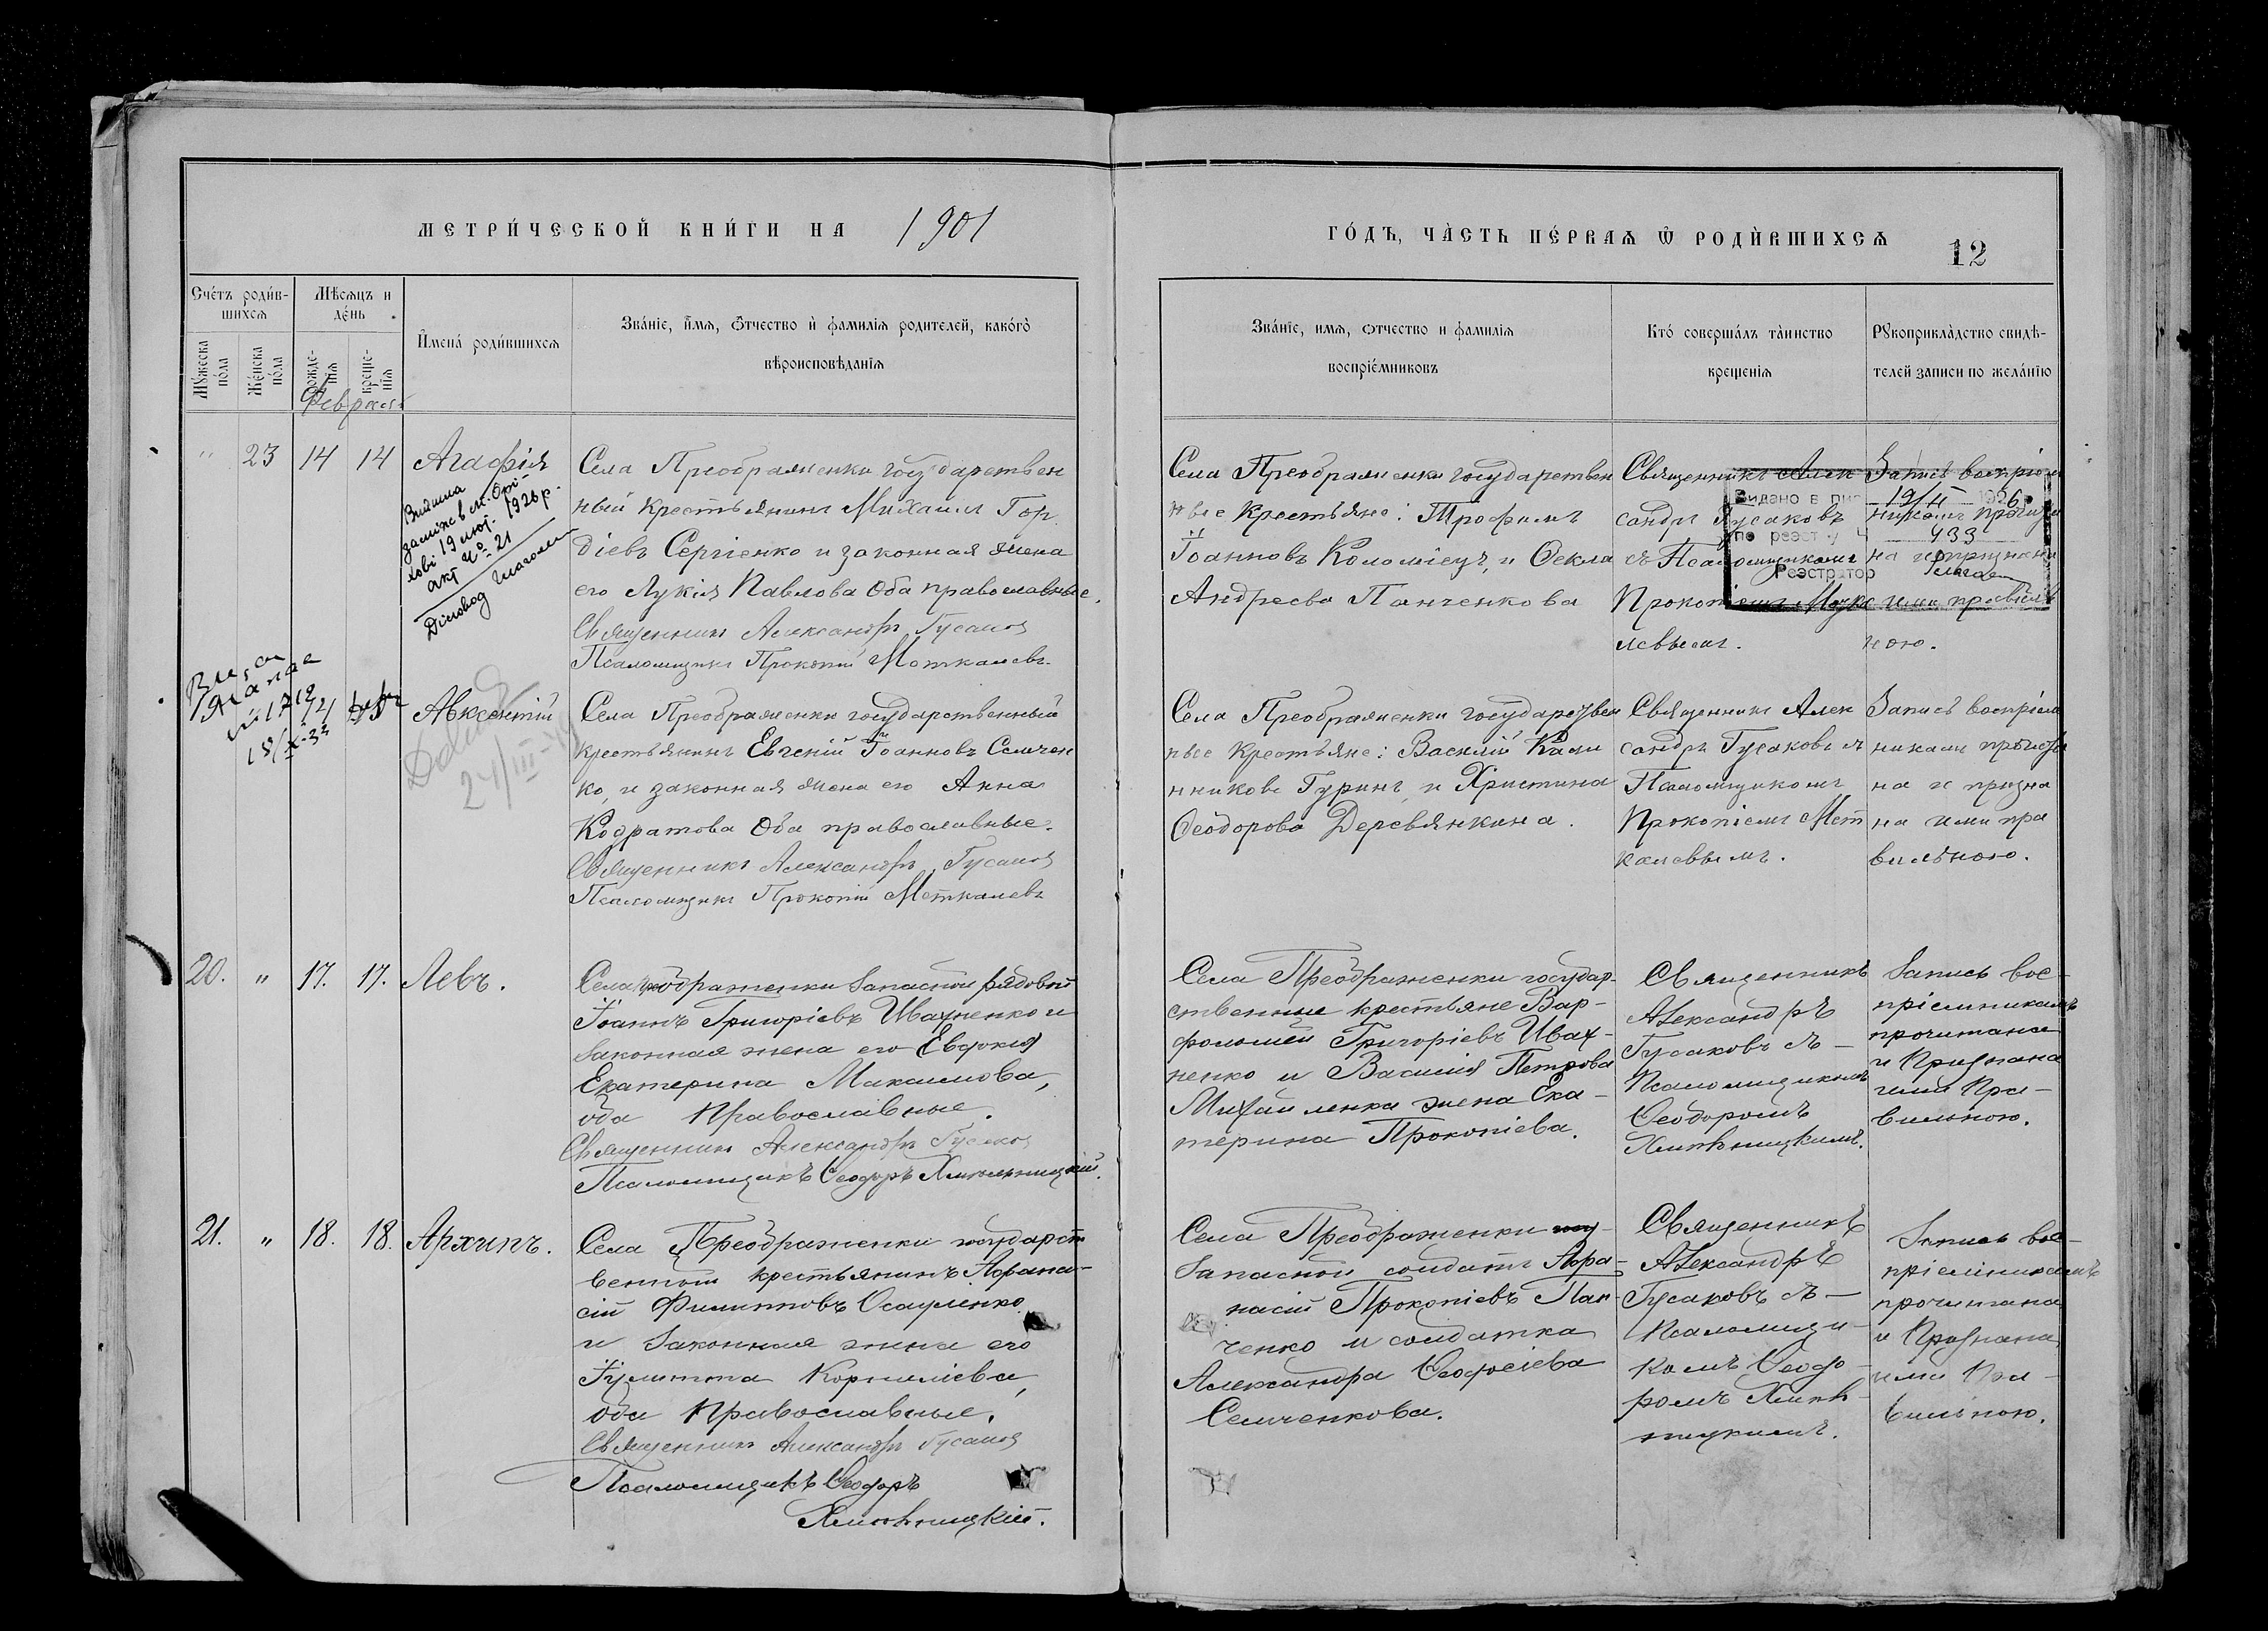 МЕТРИ́ЧЕСКОЙ КНИ́ГИ НА 1901
ГО́ДЪ, ЧА́СТЬ ПЕ́РВАѦ Ѡ РОДИ́ВШИХСѦ
12
Сче́тъ роди́в-
шихсѧ
Мѣсѧцъ и
де́нь
Мꙋжеска
по́ла
Же́нска
по́ла
рожде-
нїѧ
креще-
нїѧ
И҆мена́ роди́вшихсѧ
Зва́нїе, и҆́мѧ, ѻ҆́тчество и҆ фамилїѧ родителей, како́гѡ
вѣроисповѣданїѧ
Зва́нїе, имѧ, ѻтчество и фамилїѧ
воспрїе́мниковъ
Кто́ соверша́лъ та́инство
креще́нїѧ
Рꙋкоприкла́дство свидѣ-
телей записи по жела́нїю
Февраля
" 23 14 14 Агафія
Села Преображенки государствен
ный крестьянинъ Михаилъ Гор
діевъ Сергіенко и законная жена
его Лукія Павлова Оба православные.
Священникъ Александръ Гусаковъ
Псаломщикъ Прокопій Меткалевъ
Села Преображенки государствен
ные крестьяне: Трофимъ
Іоанновъ Коломіецъ, и Ѳекла
Андреева Панченкова
Священникъ Алек
сандръ Гусаковъ
съ Псаломщикомъ
Прокопіемъ Метка
левымъ.
Запись воспріем
никамъ прочита
на и признана
ими правиль
ною.
Видано в
19/II 1926
по реэстру Ч 433
Реэстратор
19 лют. 1926 р.
акт № 21
Діловод
14 Авксентій
18/X-33
24/III
Села Преображенки государственный
крестьянинъ Евгеній Іоанновъ Семчен
ко, и законная жена его Анна
Кодратова Оба православные.
Священникъ Александръ Гусаковъ
Псаломщикъ Прокопій Меткалевъ
Села Преображенки государствен
ные крестьяне: Василій Кали
нниковъ Гуринъ, и Христина
Ѳеодорова Деревянкина.
Священникъ Алек
сандръ Гусаковъ съ
Псаломщикомъ
Прокопіемъ Мет
калевымъ.
Запись воспріем
никамъ прочита
на и призна
на ими пра
вильною.
20. " 17. 17. Левъ.
Села Преображенки Запасной рядовой
Іоаннъ Григоріевъ Ивахненко и
Законная жена его Евдокія
Екатерина Максимова,
оба Православные.
Священникъ Александръ Гусаковъ
Псаломщикъ Ѳеодоръ Хмѣльницкій.
Села Преображенки государ-
ственные крестьяне Вар-
фоломей Григоріевъ Ивах-
ненко и Василія Петрова
Михайленка жена Ека-
терина Прокопіева.
Священникъ
Александръ
Гусаковъ съ
Псаломщикомъ
Ѳеодоромъ
Хмѣльницкимъ.
Запись вос-
пріемникамъ
прочитана
и Признана
ими Пра-
вильною.
21. " 18. 18. Архипъ.
Села Преображенки государст
венной крестьянинъ Афана-
сій Филипповъ Осауленко
и Законная жена его
Іулитта Корниліева,
оба Православные.
Священникъ Александръ Гусаковъ
Псаломщикъ Ѳеодоръ
Хмѣльницкій.
Села Преображенки
Запасной солдатъ Афа-
насій Прокопіевъ Пан-
ченко и солдатка
Александра Ѳеодосіева
Семченкова.
Священникъ
Александръ
Гусаковъ съ
Псаломщи-
комъ Ѳеодо-
ромъ Хмѣль-
ницкимъ.
Запись вос-
пріемникамъ
прочитана
и Признана
ими Пра-
вильною.